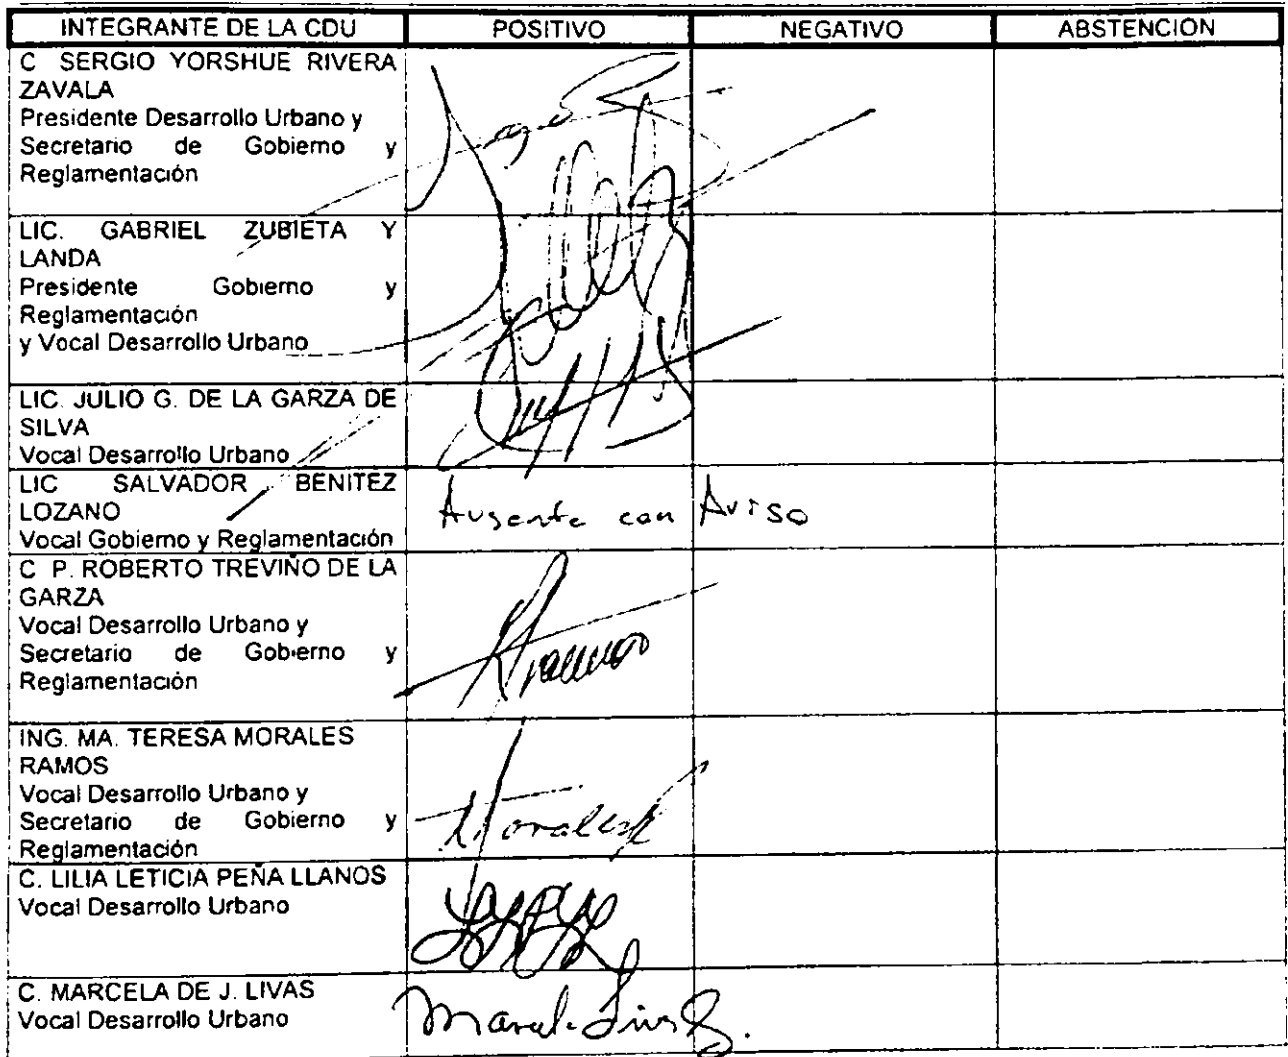 INTEGRANTE DE LA CDU POSITIVO NEGATIVO ABSTENCION
C SERGIO YORSHUE RIVERA
ZAVALA
Presidente Desarrollo Urbano y
Secretario de Gobierno y
Reglamentación
LIC. GABRIEL ZUBIETA Y
LANDA
Presidente Gobierno y
Reglamentación
y Vocal Desarrollo Urbano
LIC. JULIO G. DE LA GARZA DE
SILVA
Vocal Desarrollo Urbano
LIC SALVADOR BENITEZ
LOZANO
Vocal Gobierno y Reglamentación
Ausente con Aviso
C P. ROBERTO TREVIÑO DE LA
GARZA
Vocal Desarrollo Urbano y
Secretario de Gobierno y
Reglamentación
ING. MA. TERESA MORALES
RAMOS
Vocal Desarrollo Urbano y
Secretario de Gobierno y
Reglamentación
Morales
C. LILIA LETICIA PEÑA LLANOS
Vocal Desarrollo Urbano
C. MARCELA DE J. LIVAS
Vocal Desarrollo Urbano